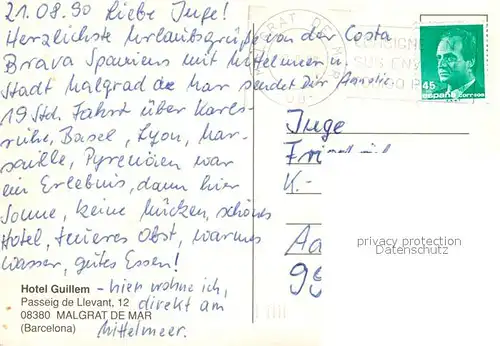 21.08.90 Liebe Inge!
Herzlichste Urlaubsgrüße von der Costa
Brava Spaniens mit Mittelmeer u.
Stadt Malgrad de Mar sendet Dir
19 Std. Fahrt über Karls-
ruhe, Basel, Lyon, Mar-
saille, Pyrenäen war
ein Erlebnis, dann hier
Sonne, keine Mücken, schönes
Hotel, teueres Obst, warmes
Wasser, gutes Essen!
Hotel Guillem - hier wohne ich,
Passeig de Llevant, 12 direkt am
08380 MALGRAT DE MAR Mittelmeer.
(Barcelona)
MALGRAT DE MAR
CONSIGNE
SUS ENV
45
ESPAÑA CORREOS
Inge
K.-
privacy protection
Datenschutz